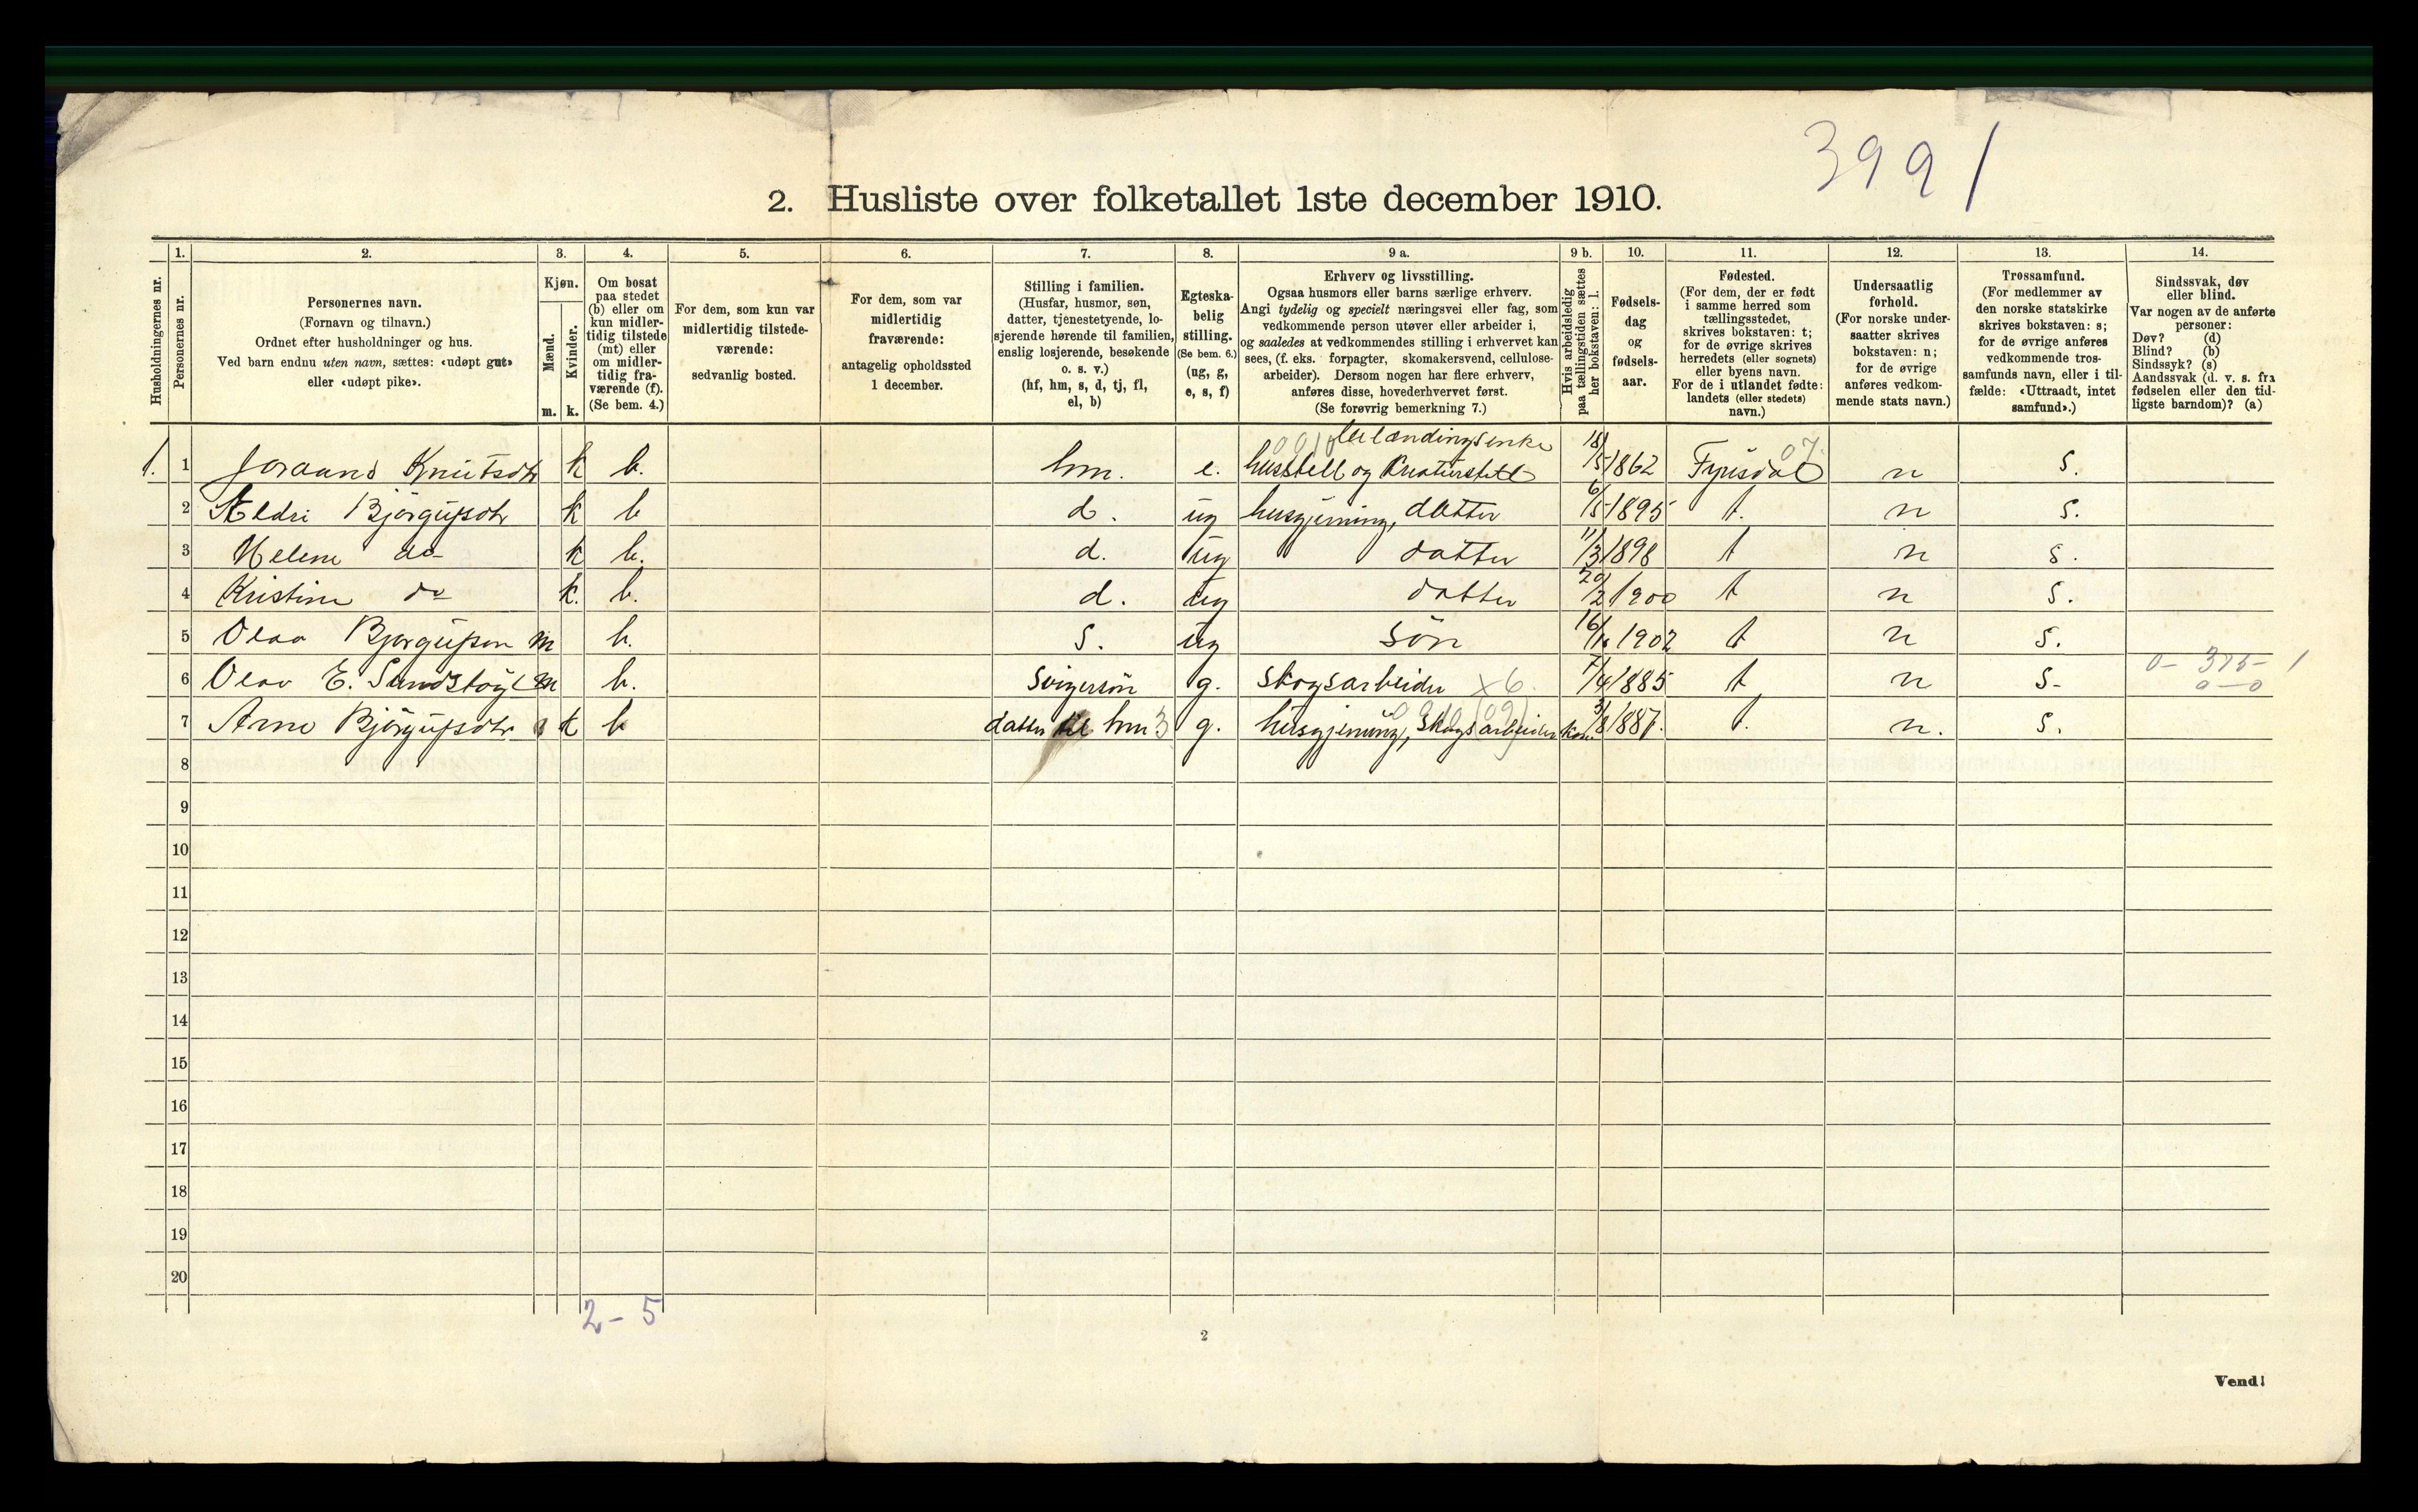 3991
2. Husliste over folketallet 1ste december 1910.
Husholdningernes nr.
1.
Personernes nr.
2.
Personernes navn.
(Fornavn og tilnavn.)
Ordnet efter husholdninger og hus.
Ved barn endnu uten navn, sættes: «udøpt gut»
eller «udøpt pike».
3.
Kjøn.
Mænd.
Kvinder.
m. k.
4.
Om bosat
paa stedet
(b) eller om
kun midler-
tidig tilstede
(mt) eller
om midler-
tidig fra-
værende (f).
(Se bem. 4.)
5.
For dem, som kun var
midlertidig tilstede-
værende:
sedvanlig bosted.
6.
For dem, som var
midlertidig
fraværende:
antagelig opholdssted
1 december.
7.
Stilling i familien.
(Husfar, husmor, søn,
datter, tjenestetyende, lo-
sjerende hørende til familien,
enslig losjerende, besøkende
o. s. v.)
(hf, hm, s, d, tj, fl,
el, b)
8.
Egteska-
belig
stilling.
(Se bem. 6.)
(ug, g,
e, s, f)
9 a.
Erhverv og livsstilling.
Ogsaa husmors eller barns særlige erhverv.
Angi tydelig og specielt næringsvei eller fag, som
vedkommende person utøver eller arbeider i,
og saaledes at vedkommendes stilling i erhvervet kan
sees, (f. eks. forpagter, skomakersvend, cellulose-
arbeider). Dersom nogen har flere erhverv,
anføres disse, hovederhvervet først.
(Se forøvrig bemerkning 7.)
9 b.
Hvis arbeidsledig
paa tællingstiden sættes
her bokstaven: l.
10.
Fødsels-
dag
og
fødsels-
aar.
11.
Fødested.
(For dem, der er født
i samme herred som
tællingsstedet,
skrives bokstaven: t;
for de øvrige skrives
herredets (eller sognets)
eller byens navn.
For de i utlandet fødte:
landets (eller stedets)
navn.)
12.
Undersaatlig
forhold.
(For norske under-
saatter skrives
bokstaven: n;
for de øvrige
anføres vedkom-
mende stats navn.)
13.
Trossamfund.
(For medlemmer av
den norske statskirke
skrives bokstaven: s;
for de øvrige anføres
vedkommende tros-
samfunds navn, eller i til-
fælde: «Uttraadt, intet
samfund».)
14.
Sindssvak, døv
eller blind.
Var nogen av de anførte
personer:
Døv? (d)
Blind? (b)
Sindssyk? (s)
Aandssvak (d. v. s. fra
fødselen eller den tid-
ligste barndom)? (a)
1. 1 Joraand Knutsdtr k b. hm. e. husstell og Kreaturstell 18/5 1862 Fyrisdal 07. n s.
2 Aldri Björgufsdtr k b d. ug husgjerning, datter 6/5 1895 t. n s.
3 Helene do k b. d. ug datter 11/3 1898 t n s.
4 Kristine do k. b. d. ug datter 20/2 1900 t n s.
5 Olav Bjorgufson m b. s. ug Sön 16/10 1902 t n s.
6 Olav E. Sundstöyl m b. Svigersön g. Skogsarbeider x6. 7/4 1885 t n s- 0- 375- 1
0-0
7 Arne Björgufsdtr k b datter til hm 3 g. husgjerning, Skogsarbeider kone 3/8 1887. t. n. s.
8
9
10
11
12
13
14
15
16
17
18
19
20
2-5
2
Vend!